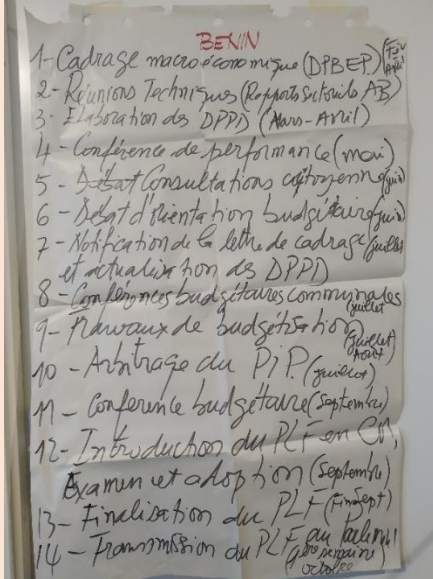 BENIN
1-Cadrage macroéconomique (DPBEP) (Fév Avril)
2- Réunions Techniques (Rapports sectoriels AB)
3- Elaboration des DPPD (Mars-Avril)
4- Conférence de performance (mai)
5- Débat Consultations citoyenne (juin)
6- Débat d'orientation budgétaire (juin)
7- Notification de la lettre de cadrage (juillet
et actualisation des DPPD
8- Conférences budgétaires communales
(juillet
9- Travaux de budgétisation
(juillet
Août)
10 - Arbitrage du PiP. (juillet)
11- Conférence budgétaire (septembre)
12- Introduction du PLF en CM,
Examen et adoption (Septembre)
13- Finalisation du PLF (Finsept)
14- Transmission du PLF au
semaine
octobre